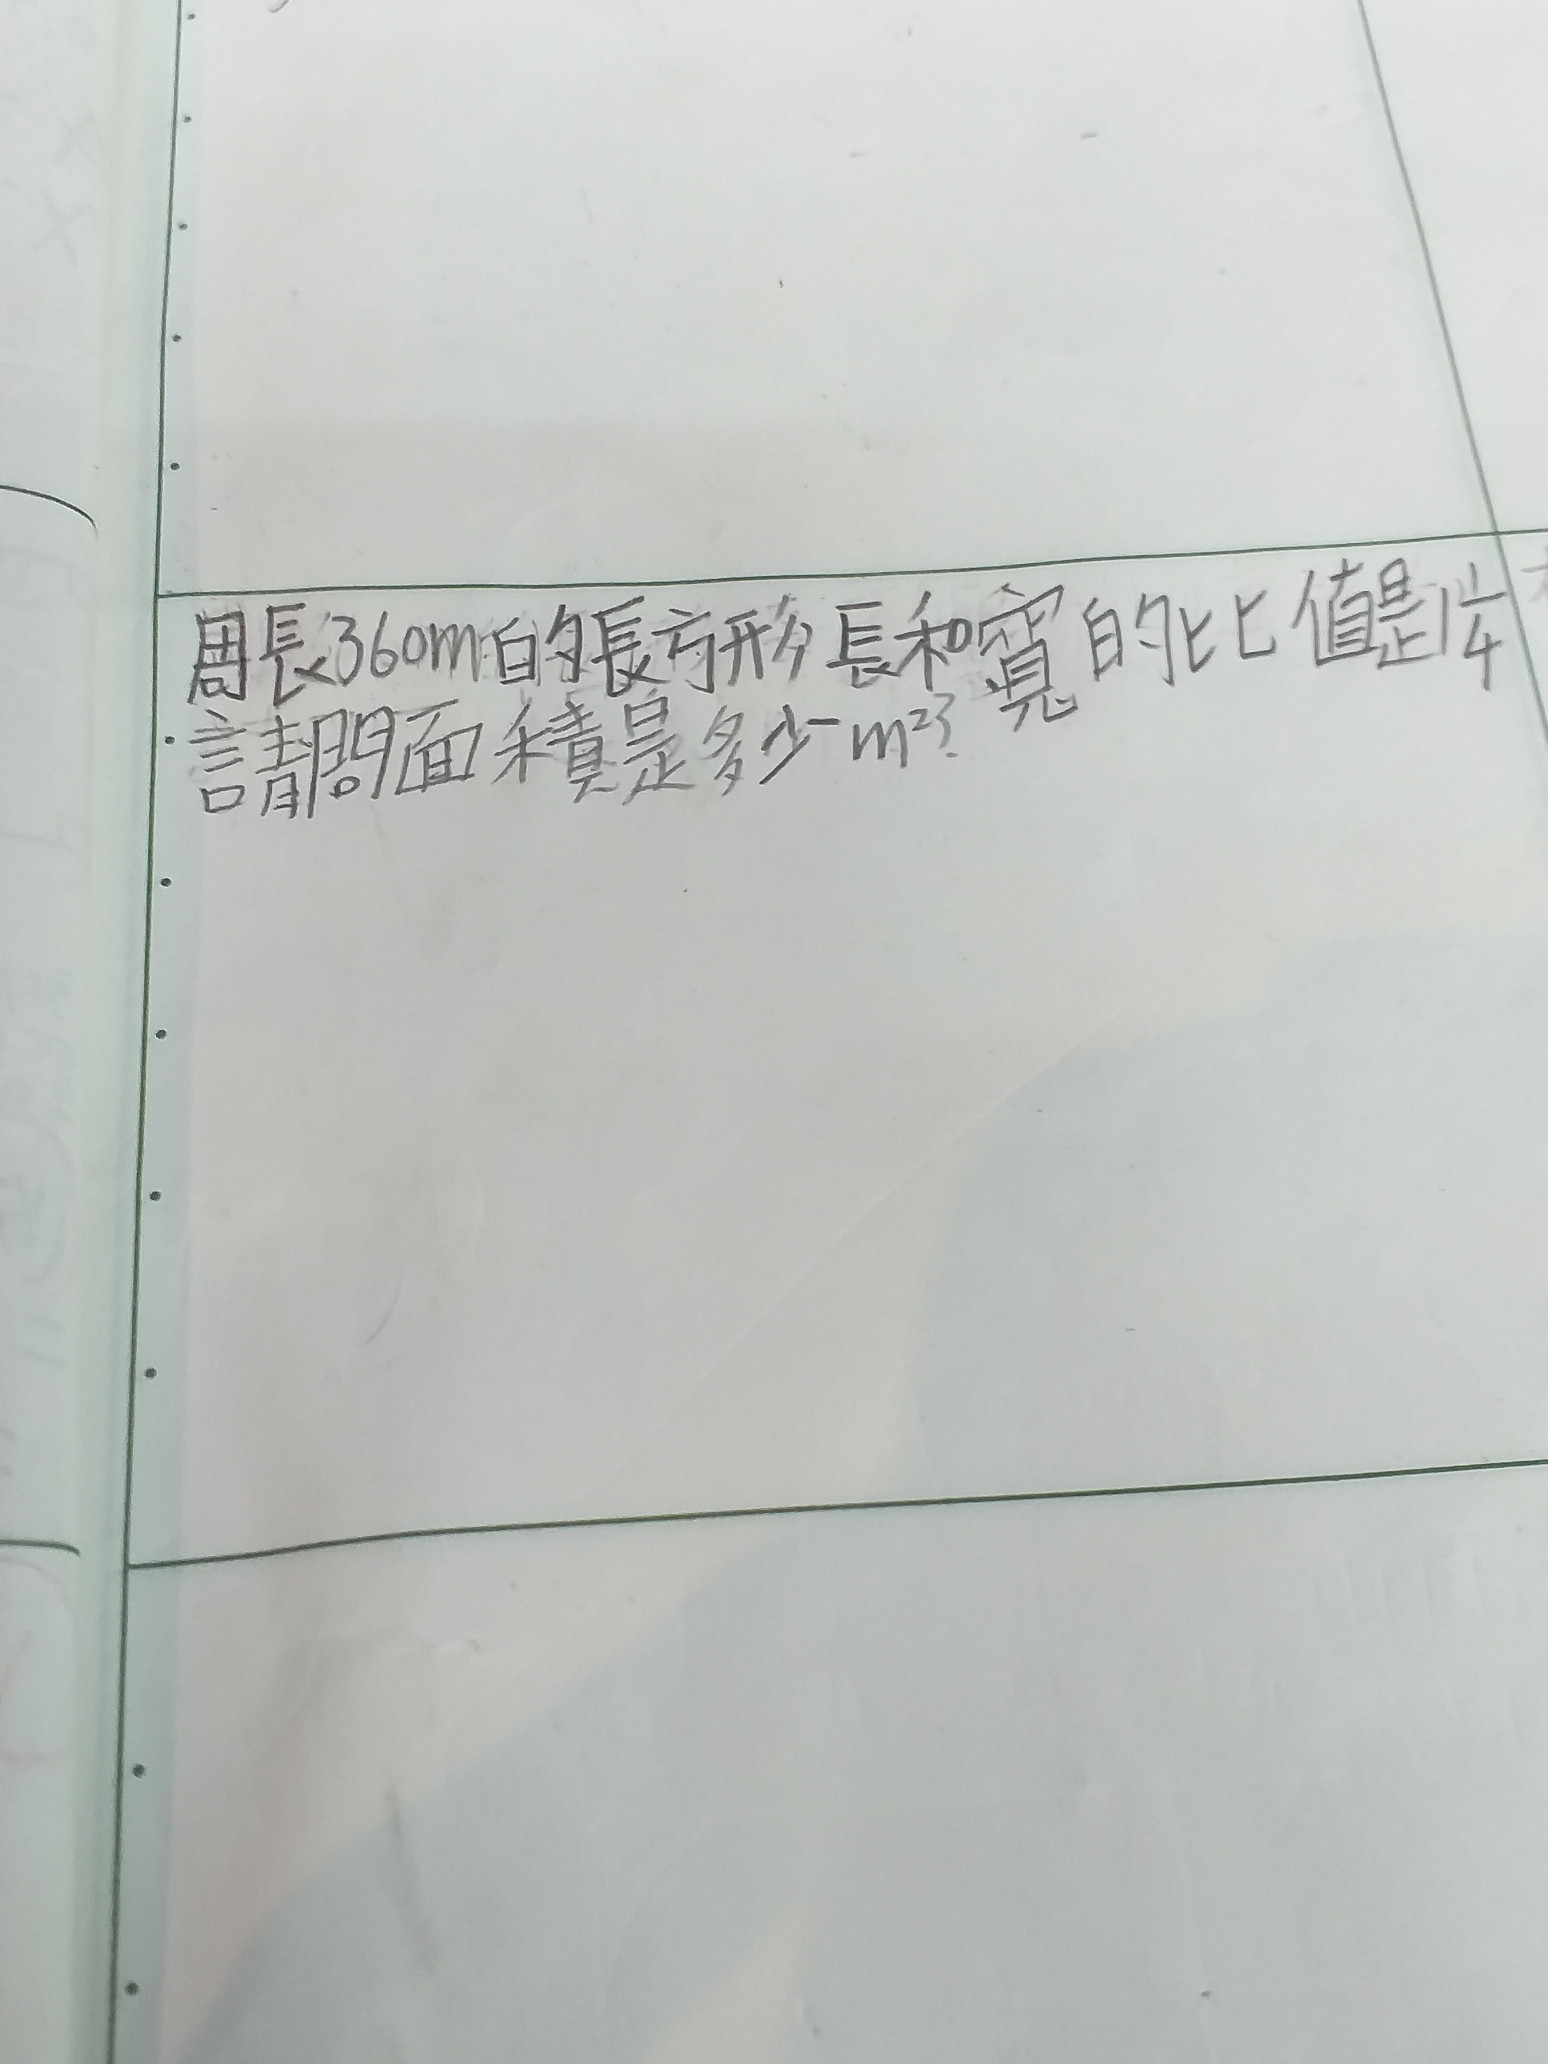 周長360m的長方形長和寬的比值是1 1/4
請問面積是多少m²?